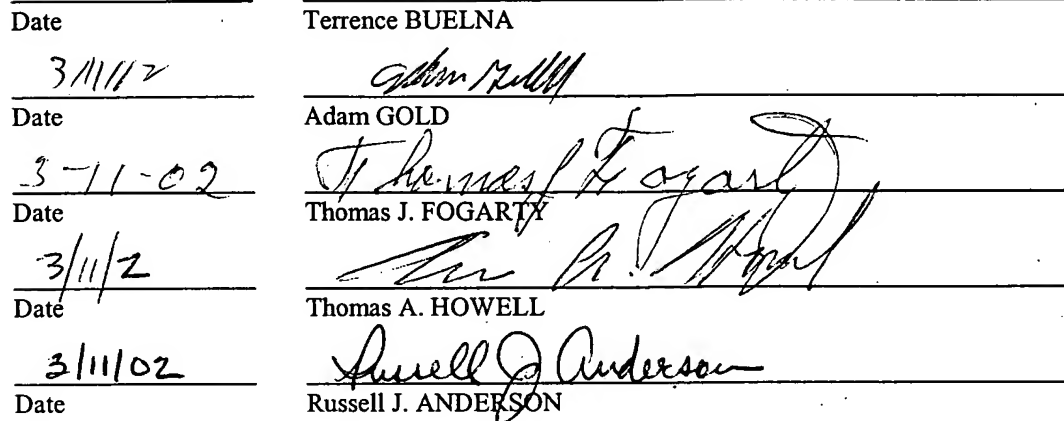 Date Terrence BUELNA
3/11/12
Date Adam GOLD
3-11-02 Thomas J Fogarty
Date Thomas J. FOGARTY
3/11/2
Date Thomas A. HOWELL
3/11/02 Russell J Anderson
Date Russell J. ANDERSON